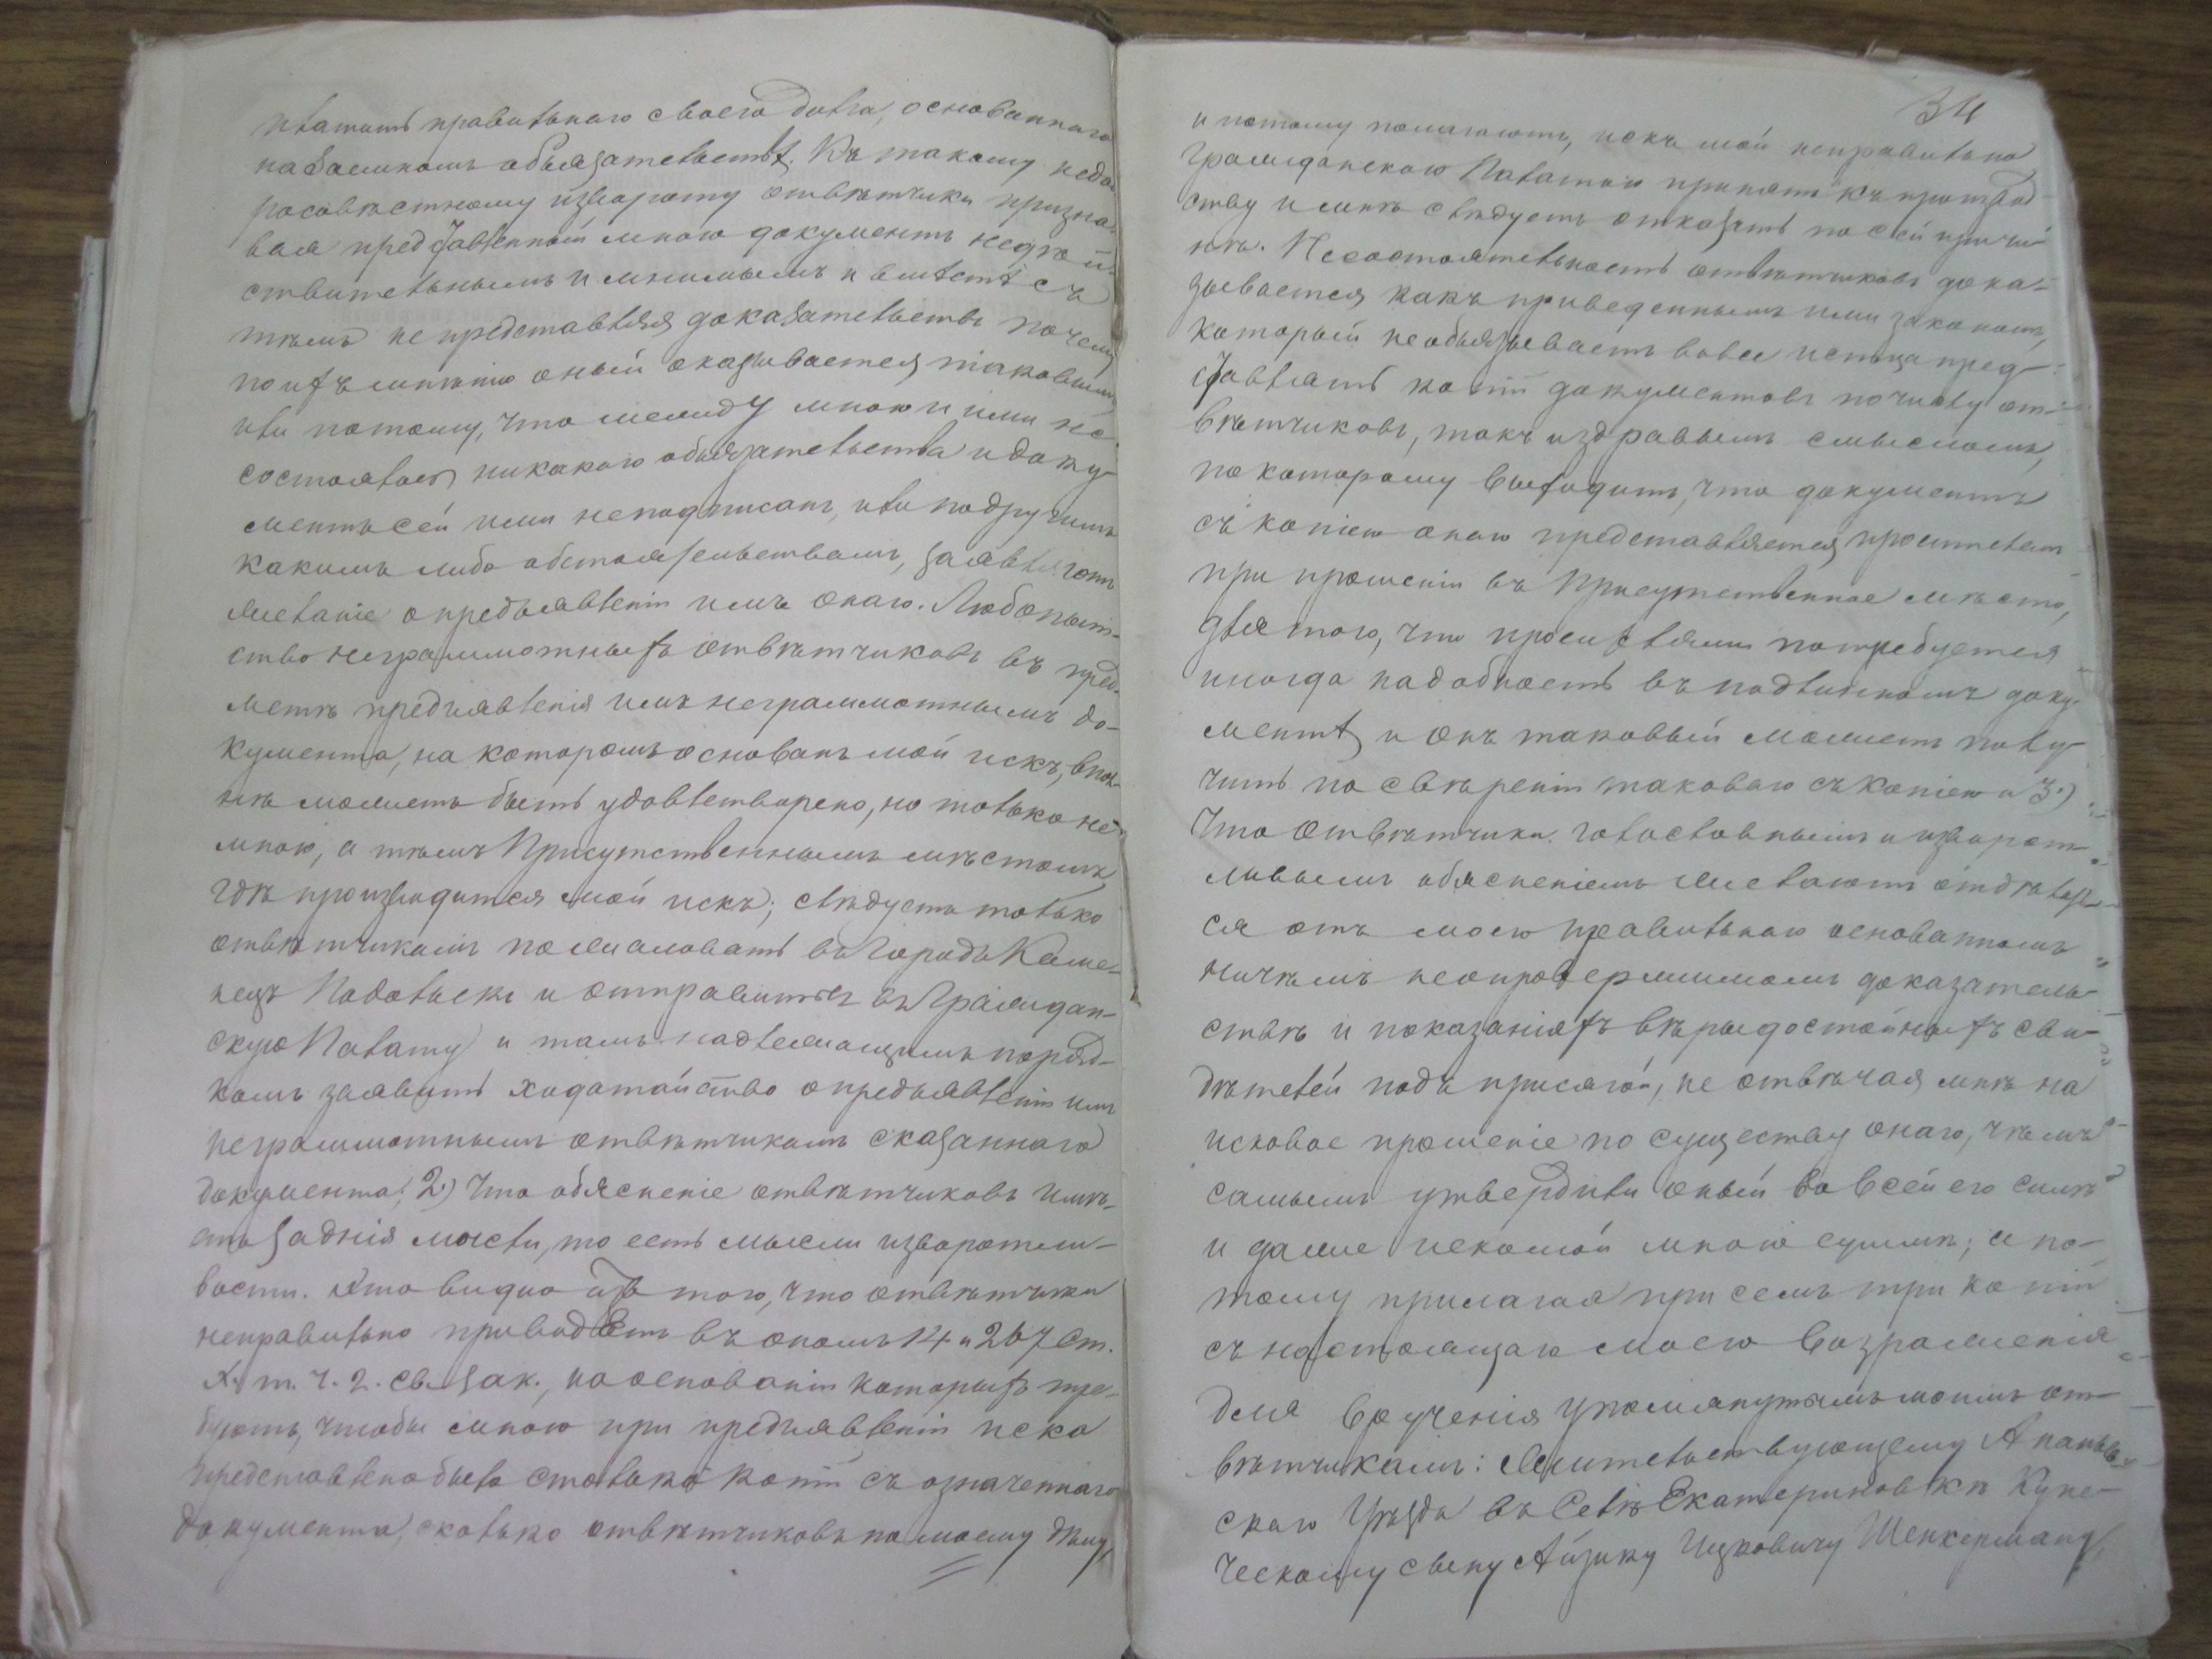 платить правильнаго своего долга, основаннаго
на заемномъ обязательствѣ. Къ такому недоб-
росовѣстному извороту отвѣтчики призна-
вая представленный мною документъ недѣй-
ствительнымъ и мнимымъ и вмѣстѣ съ
тѣмъ не представляя доказательствъ почему
по ихъ мнѣнію оный оказывается таковымъ
или потому, что между мною и ими не
состоялось никакого обязательства и доку-
ментъ сей ими неподписанъ, или по другимъ
какимъ либо обстоятельствамъ, заявляютъ
желаніе о предъявленіи имъ онаго. Любопыт-
ство неграммотныхъ отвѣтчиковъ въ пред-
метѣ предъявленія имъ неграммотнымъ до-
кумента, на которомъ основанъ мой искъ, впол-
нѣ можетъ быть удовлетворено, но только не
мною, а тѣмъ Присутственнымъ мѣстомъ,
гдѣ производится мой искъ; слѣдуетъ только
отвѣтчикамъ пожаловать въ городъ Каме-
нецъ Подольскъ и отправиться въ Граждан-
скую Палату и тамъ надлежащимъ поряд-
комъ заявить ходатайство о предъявленіи имъ
неграммотнымъ отвѣтчикамъ сказаннаго
документа; 2) Что объясненіе отвѣтчиковъ имѣ-
етъ заднія мысли, то есть мысли изворотли-
вости. Это видно изъ того, что отвѣтчики
неправильно приводятъ въ ономъ 14 и 267 ст.
X. т. ч. 2. св. зак., на основаніи которыхъ тре-
буютъ, чтобы мною при предъявленіи иска
представлено было столько копій съ означеннаго
документа, сколько отвѣтчиковъ по моему дѣлу,
34
и потому полагаютъ, искъ мой неправильно
Гражданскою Палатою принятъ къ производ-
ству и мнѣ слѣдуетъ отказать по сей причи-
нѣ. Несостоятельность отвѣтчиковъ дока-
зывается какъ приведеннымъ ими закономъ,
который необязываетъ вовсе истца пред-
ставлять копій документовъ по числу от-
вѣтчиковъ, такъ и здравымъ смысломъ,
по которому выходитъ, что документъ
съ копіею онаго представляется просителемъ
при прошеніи въ Присутственное мѣсто,
для того, что просителямъ потребуется
иногда надобность въ подлинномъ доку-
ментѣ и онъ таковый можетъ полу-
чить по свѣреніи таковаго съ копіею и 3)
Что отвѣтчики голословнымъ и изворот-
ливымъ объясненіемъ желаютъ отдѣлать-
ся отъ моего правильнаго основанномъ
ничѣмъ неопровержимомъ доказатель-
ствѣ и показаніяхъ вѣры достойныхъ сви-
дѣтелей подъ присягой, не отвѣчая мнѣ на
исковое прошеніе по существу онаго, чѣмъ
самымъ утвердили оный во всей его силѣ
и даже искомой мною суммѣ; а по-
тому прилагая при семъ три копіи
съ настоящаго моего возраженія
для врученія упомянутымъ моимъ от-
вѣтчикамъ: Жительствующему Ананьев-
скаго Уѣзда въ Селѣ Екатериновкѣ Купе-
ческому сыну Айзику Ицковичу Шенкерману,